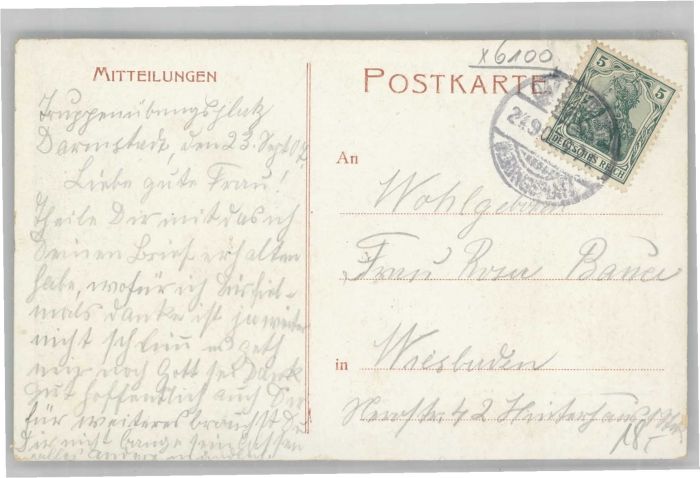 x6100
MITTEILUNGEN
POSTKARTE
5 5
DEUTSCHES REICH
24.9.0
Truppenübungsplatz
Darmstadt, den 23. Sept 07.
Liebe gute Frau!
Theile Dir mit das ich
Deinen Brief erhalten
habe, wofür ich Dir viel-
mals danke ist ja weiter
nicht schlimm es geht
mir noch Gott sei Dank
gut hoffentlich auch Dir
für weiteres brauchst du
Dir nicht bange sein lassen
alles andere mündlich
An
Wohlgeboren
Frau Rosa Bauer
in
Wiesbaden
Nerostr. 42 Hinterhaus
18.-